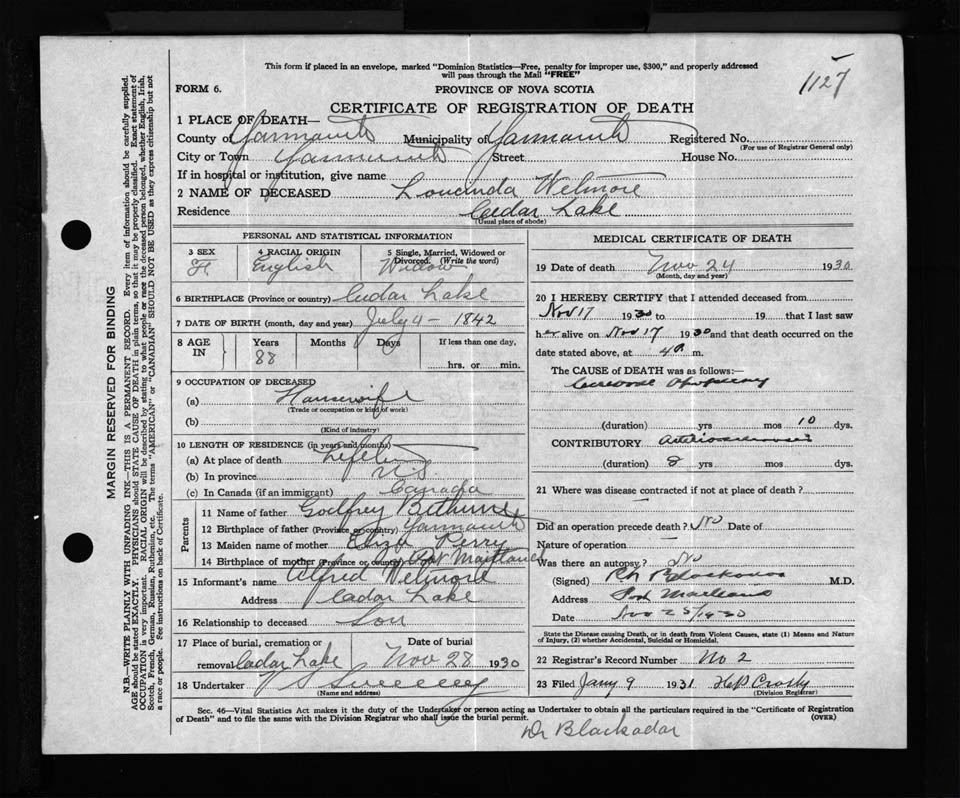 1127
This form if placed in an envelope, marked "Dominion Statistics—Free, penalty for improper use, $300," and properly addressed
will pass through the Mail "FREE"
FORM 6.
PROVINCE OF NOVA SCOTIA
CERTIFICATE OF REGISTRATION OF DEATH
1 PLACE OF DEATH—
County of Yarmouth Municipality of Yarmouth Registered No.
(For use of Registrar General only)
City or Town Yarmouth Street House No.
If in hospital or institution, give name
2 NAME OF DECEASED Loucinda Welmore
Residence Cedar Lake
(Usual place of abode)
PERSONAL AND STATISTICAL INFORMATION
3 SEX 4 RACIAL ORIGIN 5 Single, Married, Widowed or
Divorced. (Write the word)
F English Widow
6 BIRTHPLACE (Province or country) Cedar Lake
7 DATE OF BIRTH (month, day and year) July 4 - 1842
8 AGE IN Years Months Days If less than one day,
88 hrs. or min.
9 OCCUPATION OF DECEASED
(a) Housewife
(Trade or occupation or kind of work)
(b)
(Kind of industry)
10 LENGTH OF RESIDENCE (in years and months)
(a) At place of death
(b) In province
(c) In Canada (if an immigrant) Canada
Parents
11 Name of father Godfrey Bethune
12 Birthplace of father (Province or country) Yarmouth
13 Maiden name of mother Eliza Perry
14 Birthplace of mother (Province or country) Port Maitland
15 Informant's name Alfred Welmore
Address Cedar Lake
16 Relationship to deceased Son
17 Place of burial, cremation or Date of burial
removal Cedar Lake Nov 28 1930
18 Undertaker V S Sweeney
(Name and address)
MEDICAL CERTIFICATE OF DEATH
19 Date of death Nov 24 1930
(Month, day and year)
20 I HEREBY CERTIFY that I attended deceased from
Nov 17 1930 to 19 that I last saw
her alive on Nov 17 1930 and that death occurred on the
date stated above, at 4 a. m.
The CAUSE of DEATH was as follows:—
(duration) yrs mos 10 dys.
CONTRIBUTORY
(duration) 8 yrs mos dys.
21 Where was disease contracted if not at place of death?
Did an operation precede death? No Date of
Nature of operation —
Was there an autopsy? No
(Signed) M.D.
Address Port Maitland
Date Nov 25/1930
State the Disease causing Death, or in death from Violent Causes, state (1) Means and Nature
of Injury, (2) whether Accidental, Suicidal or Homicidal.
22 Registrar's Record Number No 2
23 Filed Jany 9 1931 H P Crosby
(Division Registrar)
Sec. 46—Vital Statistics Act makes it the duty of the Undertaker or person acting as Undertaker to obtain all the particulars required in the "Certificate of Registration
of Death" and to file the same with the Division Registrar who shall issue the burial permit. (OVER)
Dr Blackadar
MARGIN RESERVED FOR BINDING
N.B.—WRITE PLAINLY WITH UNFADING INK—THIS IS A PERMANENT RECORD. Every item of information should be carefully supplied.
AGE should be stated EXACTLY. PHYSICIANS should STATE CAUSE OF DEATH in plain terms, so that it may be properly classified. Exact statement of
OCCUPATION is very important. RACIAL ORIGIN will be described by stating to what people or race the deceased person belonged, whether English, Irish,
Scotch, French, German, Russian, Ruthenian, etc. The terms "AMERICAN" or "CANADIAN" SHOULD NOT BE USED as they express citizenship but not
a race or people. See instructions on back of Certificate.